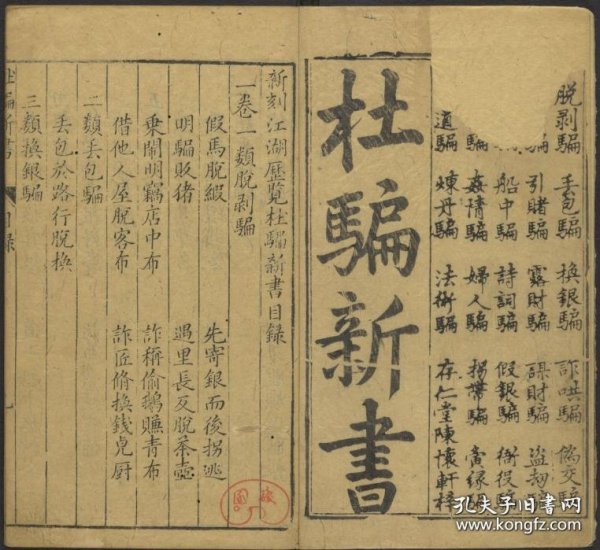 脫剥騙 丢包騙 換銀騙 詐哄騙 偽交騙
騙 引賭騙 露財騙 謀財騙 盜劫
騙 船中騙 詩詞騙 假銀騙 衙役
騙 姦情騙 婦人騙 拐帶騙 當緣
道騙 煉丹騙 法術騙 存仁堂陳懷軒梓
杜騙新書
新刻江湖歷覽杜騙新書目錄
一卷一類脫剥騙
假馬脫緞 先寄銀而後拐逃
明騙販猪 遇里長反脫茶壺
乘鬧明竊店中布 詐稱偷鵝賺青布
借他人屋脫客布 詐匠脩換錢皃厨
二類丢包騙
丢包於路行脫換
三類換銀騙
杜騙新書 目錄
孔夫子旧书网
www.kongfz.com